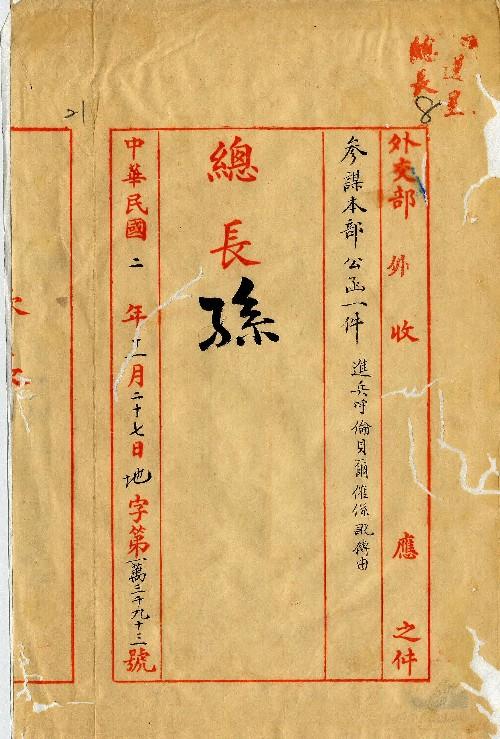 逕呈
總長
8
外交部 外 收 應 之件
參謀本部公函一件 進兵呼倫貝爾確係訛傳由
總長 孫
中華民國 二 年 十二 月 二十七 日 地 字第 一萬三千九十三 號
21